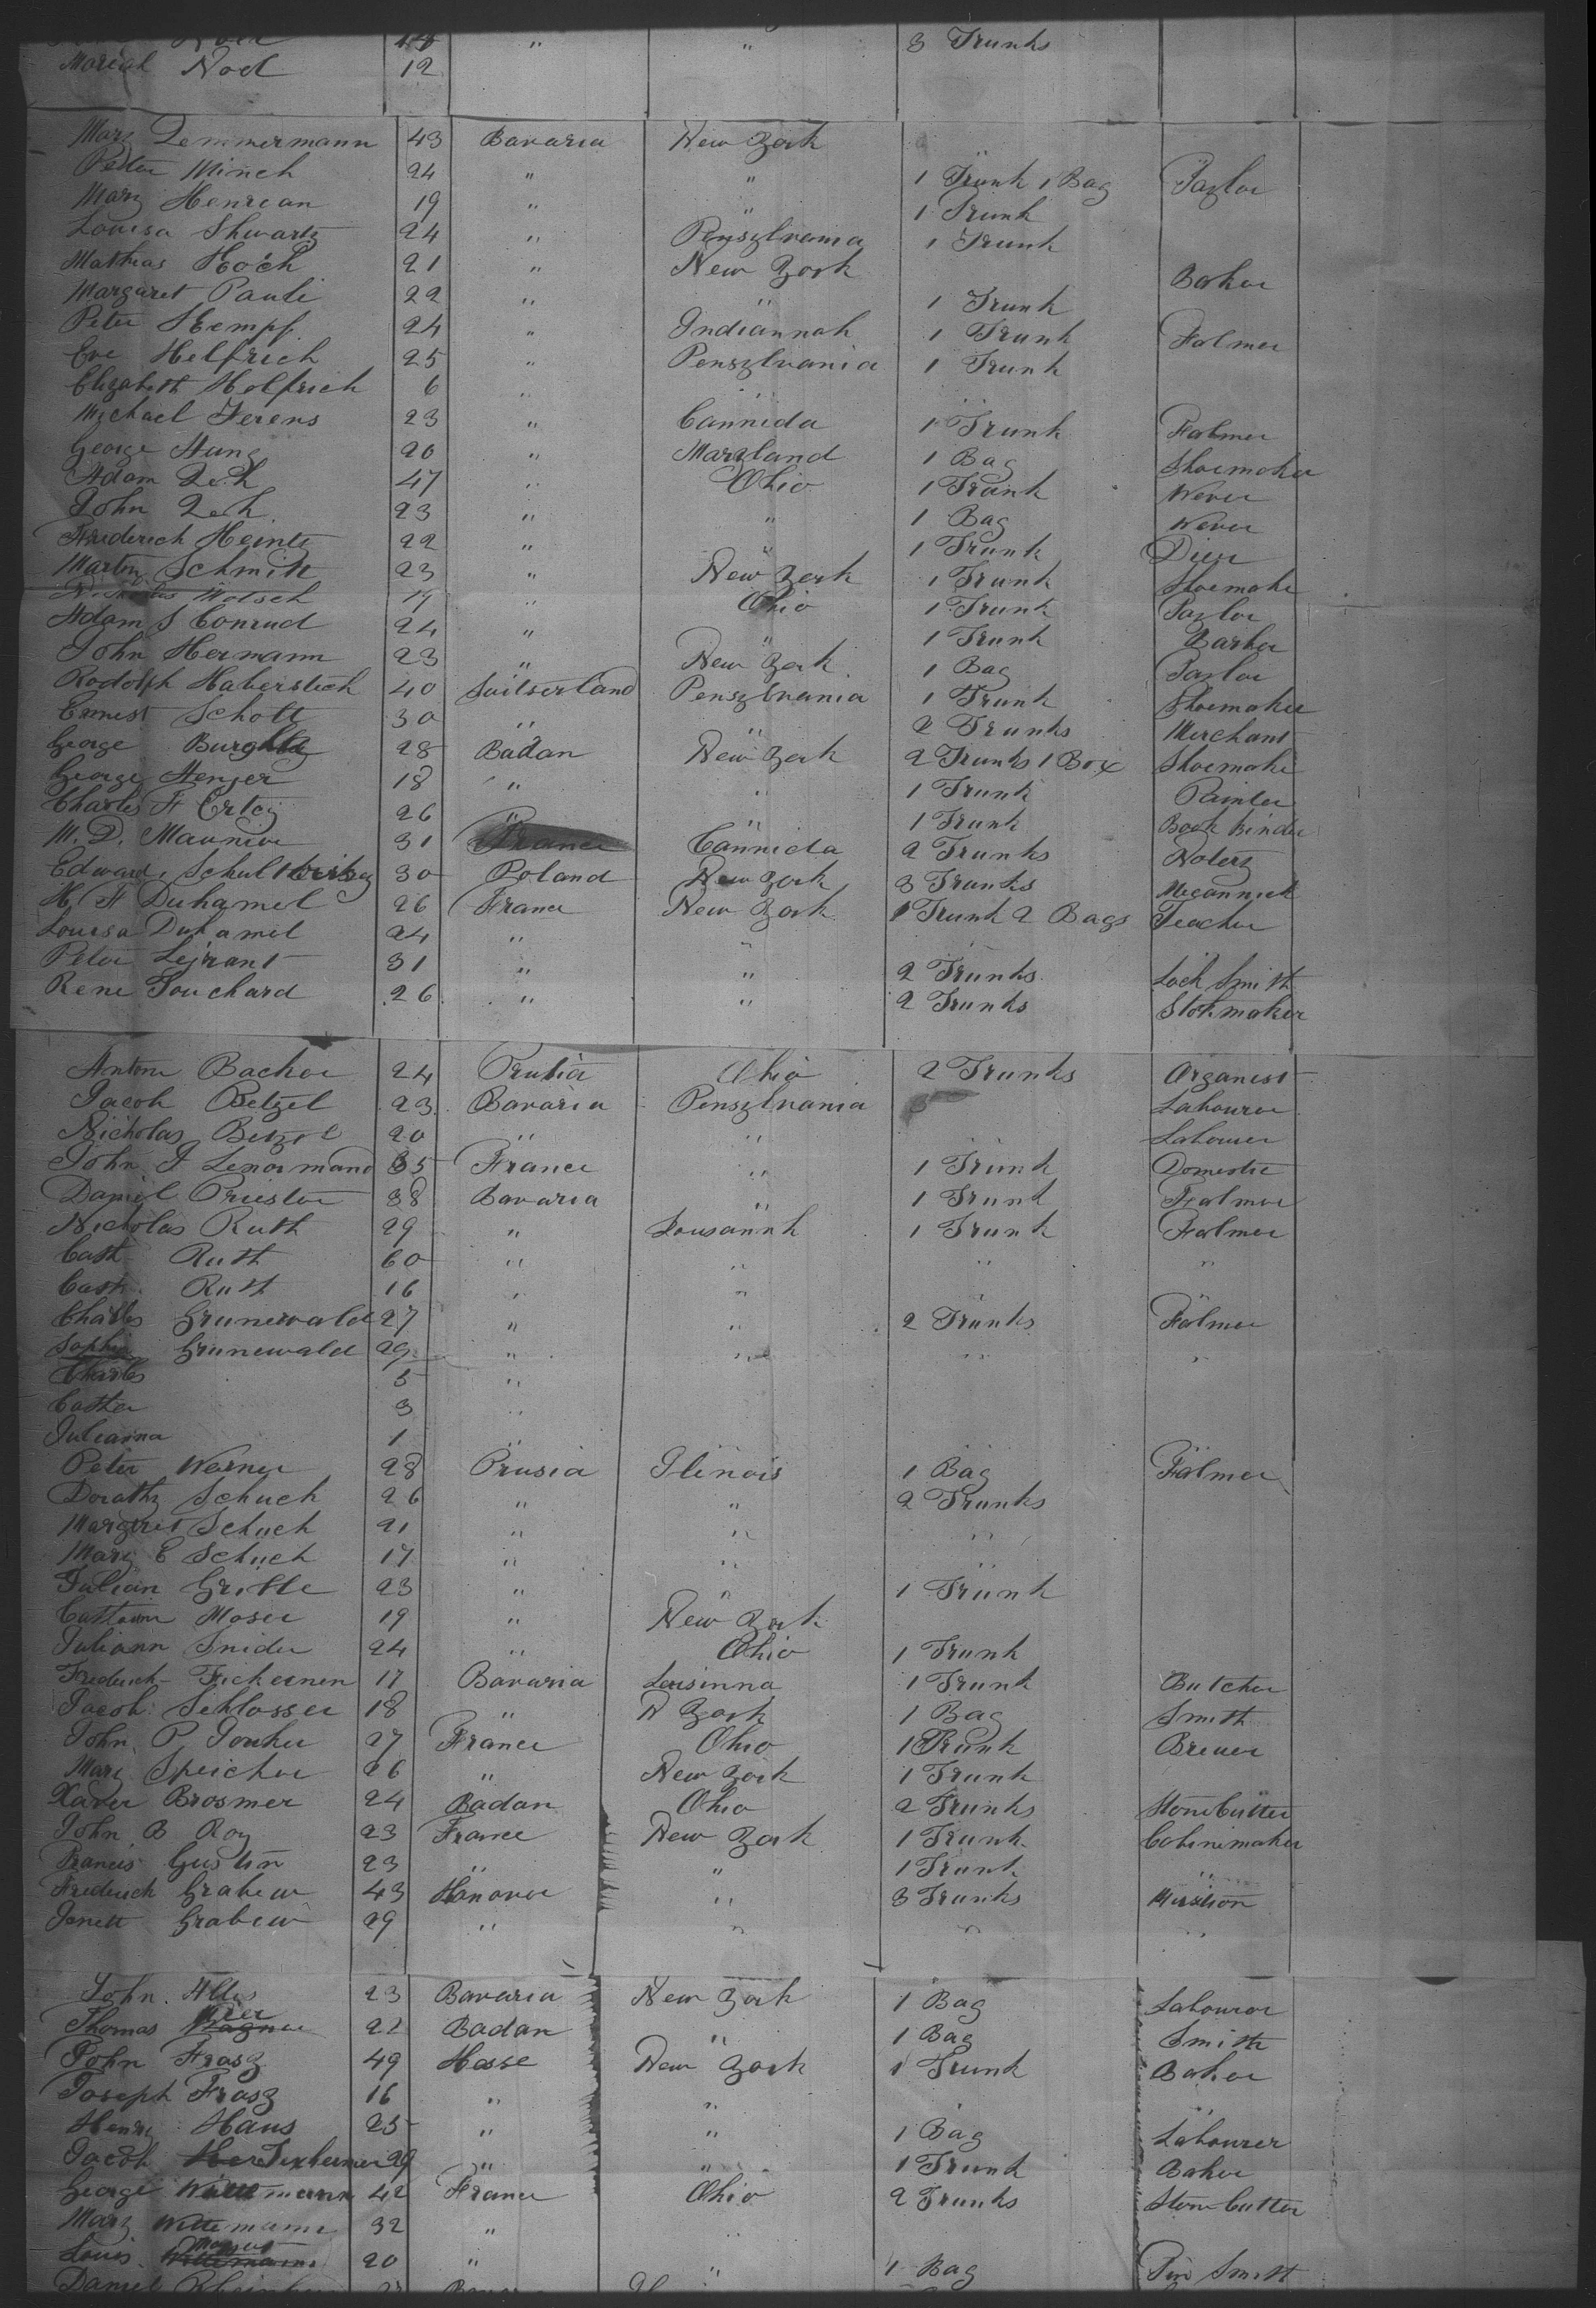 3 Trunks
Mariah Noel 12
Mary Zemmermann 43 Bavaria New York
Peter Minch 24 " " 1 Trunk 1 Bag Taylor
Mary Henrean 19 " " 1 Trunk
Louisa Shwartz 24 " Pensylvania 1 Trunk
Mathias Hoch 21 " New York Baker
Margaret Pauli 22 " " 1 Trunk
Peter Hempf 24 " Indiannah 1 Trunk Falmer
Eve Helfrich 25 " Pensylvania 1 Trunk
Elizabeth Helfrich 6 " "
Michael Ferens 23 " Cannida 1 Trunk Falmer
George Hung 20 " Maryland 1 Bag Shoemaker
Adam Zeh 47 " Ohio 1 Trunk Wever
John Zeh 23 " " 1 Bag Wever
Frederich Heintz 22 " " 1 Trunk Dier
Martin Schmitt 23 " New York 1 Trunk Shoemaker
Motsch 19 " Ohio 1 Trunk Taylor
Adam J Conrud 24 " " 1 Trunk Barber
John Hermann 23 " New York 1 Bag Taylor
Rodolph Haberstich 40 Switserland Pensylvania 1 Trunk Shoemaker
Ernest Scholl 30 " " 2 Trunks Merchant
George 28 Badan New York 2 Trunks 1 Box Shoemaker
George Henger 18 " " 1 Trunk Painter
Charles F Ertey 26 " " 1 Trunk Book Binder
M. D. Maunier 31 France Cannida 2 Trunks Notery
Edward 30 Poland New York 3 Trunks Mecannick
H F Duhamel 26 France New York 1 Trunk 2 Bags Teacher
Louisa Duhamel 24 " "
Peter Lejrant 31 " " 2 Trunks Lock Smith
Rene Touchard 26 " " 2 Trunks Stokmaker
Antone Bacher 24 Prusia Ohio 2 Trunks Arganest
Jacob Betzel 23 Bavaria Pensylvania Labourer
Nicholas Betzel 20 " " Labourer
John J Lenormand 35 France " 1 Trunk Domestic
Daniel Priester 38 Bavaria " 1 Trunk Falmer
Nicholas Ruth 29 " Lousannh 1 Trunk Falmer
Cath Ruth 60 " " " "
Cath. Ruth 16 " "
Charles Grunewald 27 " " 2 Trunks Falmer
Sophia Grunewald 29 " " " "
Charles 5 "
Cather 3 "
Julianna 1 "
Peter Werner 28 Prusia Ilinois 1 Bag Falmer
Dorathy Schuch 26 " " 2 Trunks
Margeret Schuch 21 " " "
Mary E Schuch 17 " " "
Julian Gribbe 23 " " 1 Trunk
Moser 19 " New York
Juliann Snider 24 " Ohio 1 Trunk
Frederick Fickeinen 17 Bavaria Luisinna 1 Trunk Butcher
Jacob Schlosser 18 " N York 1 Bag Smith
John P Jouker 27 France Ohio 1 Trunk Brewer
Mary Speicher 26 " New York 1 Trunk
Xaver Brosmer 24 Badan Ohio 2 Trunks Stone Cutter
John B Roy 23 France New York 1 Trunk Cabinimaker
Francis Gustin 23 " " 1 Trunk "
Frederick Grabew 43 Hanover " 3 Trunks
Jenett Grabew 29 " " " "
John Alles 23 Bavaria New York 1 Bag Labourer
Thomas 22 Badan " 1 Bag Smith
John Frasz 49 Hesse New York 1 Trunk Baker
Joseph Frasz 16 " "
Henry Haus 25 " " 1 Bag Labourer
Jacob 29 " " 1 Trunk Baker
George Wittemann 42 France Ohio 2 Trunks Stone Cutter
Mary Wittemann 32 " "
Louis 20 " " 1 Bag Tin Smith
Daniel